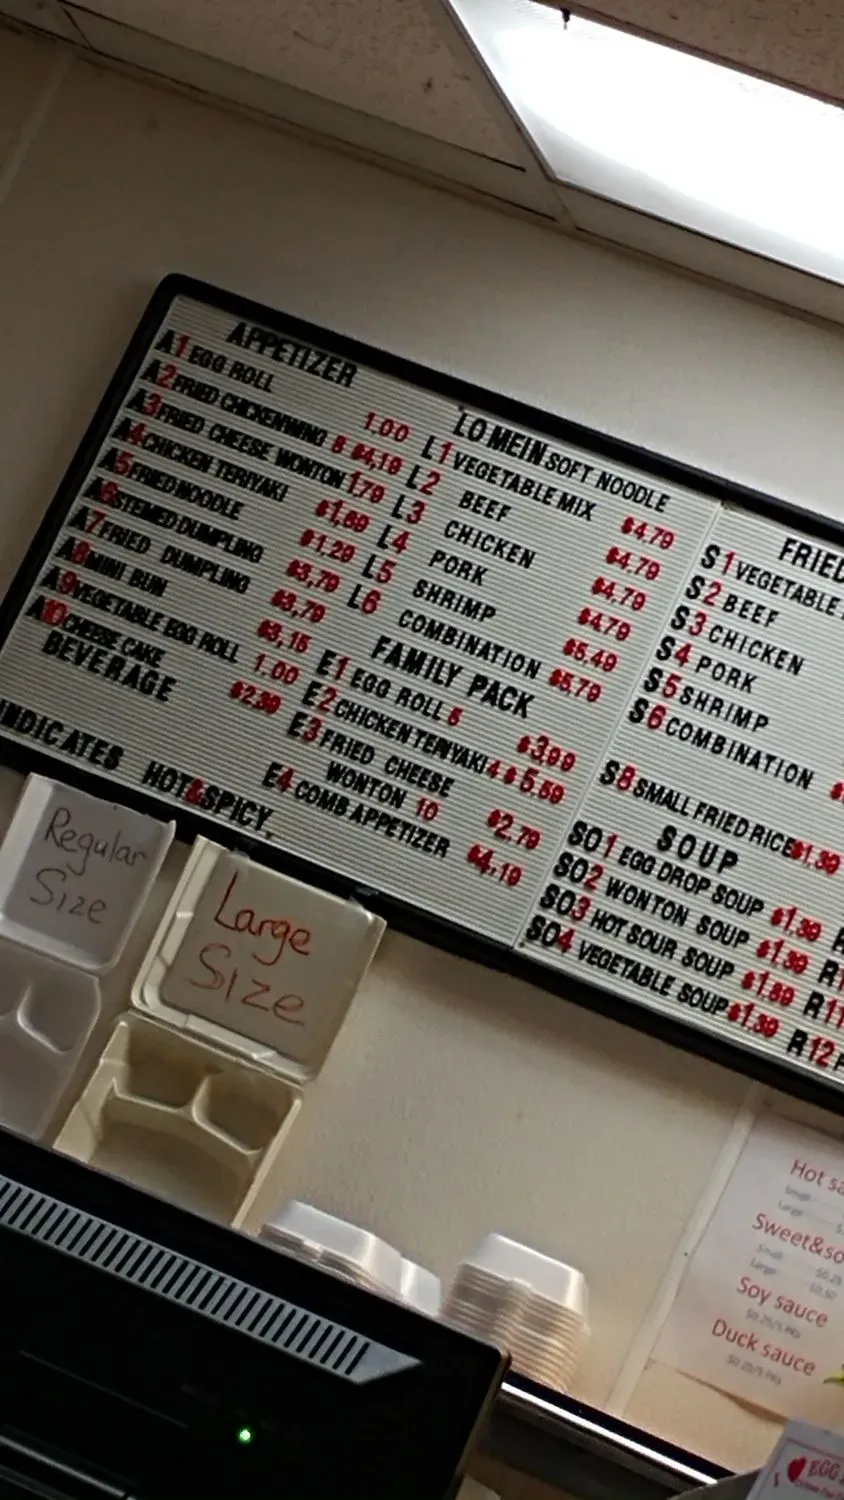 APPETIZER
A1 EGG ROLL 1.00
A2 FRIED CHICKENWING 8 $4,19
A3 FRIED CHEESE WONTON 1.79
A4 CHICKEN TERIYAKI $1,69
A5 FRIED NOODLE $1.29
A6 STEMED DUMPLING $3,79
A7 FRIED DUMPLING $3,79
A8 MINI BUN $3,15
A9 VEGETABLE EGG ROLL 1.00
A10 CHEESE CAKE $2.39
BEVERAGE
INDICATES HOT&SPICY.
LO MEIN SOFT NOODLE
L1 VEGETABLE MIX $4,79
L2 BEEF $4.79
L3 CHICKEN $4,79
L4 PORK $4.79
L5 SHRIMP $5,49
L6 COMBINATION $5.79
FAMILY PACK
E1 EGG ROLL 5 $3,99
E2 CHICKEN TERIYAKI 4 $5,59
E3 FRIED CHEESE
WONTON 10 $2.79
E4 COMB APPETIZER $4,19
FRIED
S1 VEGETABLE
S2 BEEF
S3 CHICKEN
S4 PORK
S5 SHRIMP
S6 COMBINATION
S8 SMALL FRIED RICE $1.39
SOUP
SO1 EGG DROP SOUP $1.39
SO2 WONTON SOUP $1.39
SO3 HOT SOUR SOUP $1.69
SO4 VEGETABLE SOUP $1.39
R11
R12
Regular
Size
Large
Size
Hot sa
Small
Large
Sweet&so
Small $0.25
Large $0.50
Soy sauce
Duck sauce
EGG